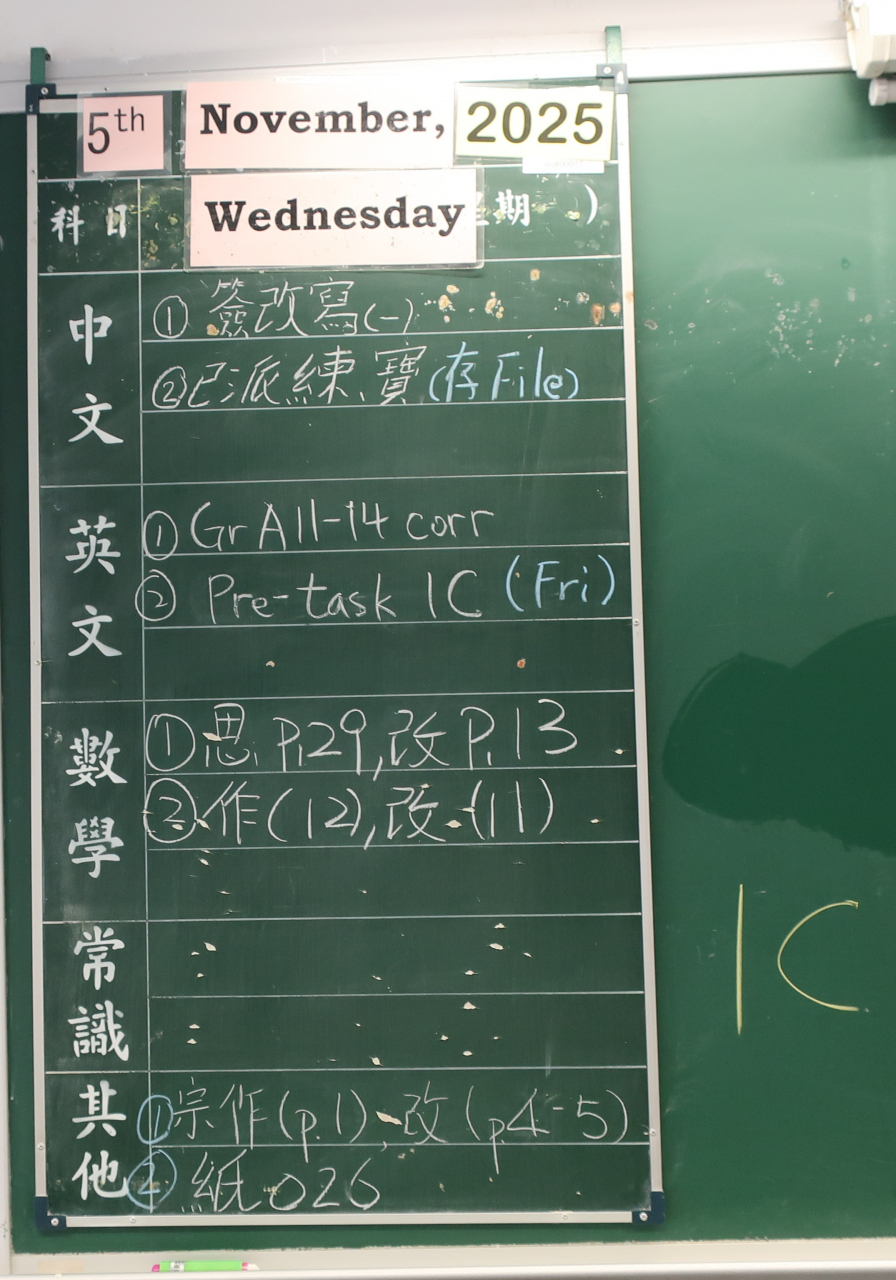 5th November, 2025
科目 Wednesday 期 )
中文
① 簽改寫(一)
② 已派練、寶(存File)
英文
① Gr A11-14 corr
② Pre-task 1C (Fri)
數學
① 思 P.29, 改 P.13
② 作(12), 改 (11)
常識
其他
① 宗作(p.1)、改(p4-5)
② 紙026
1C